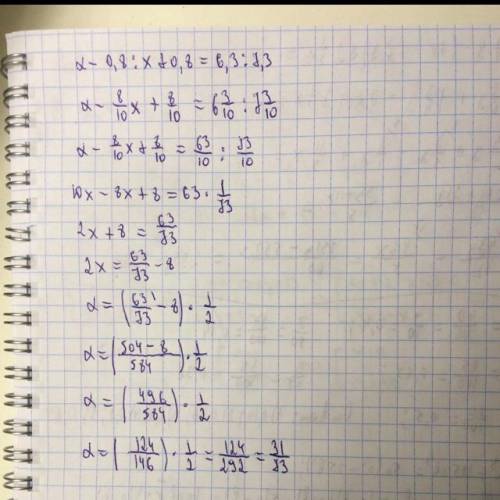 x - 0,8 : x + 0,8 = 6,3 : 7,3
x - 8/10 x + 8/10 = 6 3/10 : 73/10
x - 8/10 x + 8/10 = 63/10 : 73/10
10x - 8x + 8 = 63 · 1/73
2x + 8 = 63/73
2x = 63/73 - 8
x = (63/73 - 8) · 1/2
x = (504 - 8/584) · 1/2
x = (496/584) · 1/2
x = (124/146) · 1/2 = 124/292 = 31/73